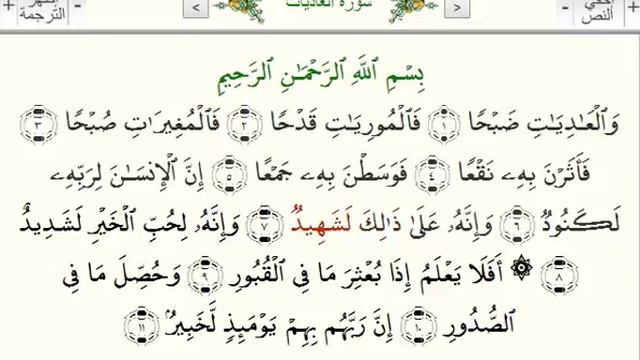 + الترجمة - > سورة العاديات < - النص +
بِسْمِ اللَّهِ الرَّحْمَـٰنِ الرَّحِيمِ
وَالْعَادِيَاتِ ضَبْحًا ١ فَالْمُورِيَاتِ قَدْحًا ٢ فَالْمُغِيرَاتِ صُبْحًا ٣
فَأَثَرْنَ بِهِۦ نَقْعًا ٤ فَوَسَطْنَ بِهِۦ جَمْعًا ٥ إِنَّ الْإِنسَـٰنَ لِرَبِّهِۦ
لَكَنُودٌ ٦ وَإِنَّهُۥ عَلَىٰ ذَٰلِكَ لَشَهِيدٌ ٧ وَإِنَّهُۥ لِحُبِّ الْخَيْرِ لَشَدِيدٌ
٨ ۞ أَفَلَا يَعْلَمُ إِذَا بُعْثِرَ مَا فِي الْقُبُورِ ٩ وَحُصِّلَ مَا فِي
الصُّدُورِ ١٠ إِنَّ رَبَّهُم بِهِمْ يَوْمَئِذٍ لَّخَبِيرٌ ١١